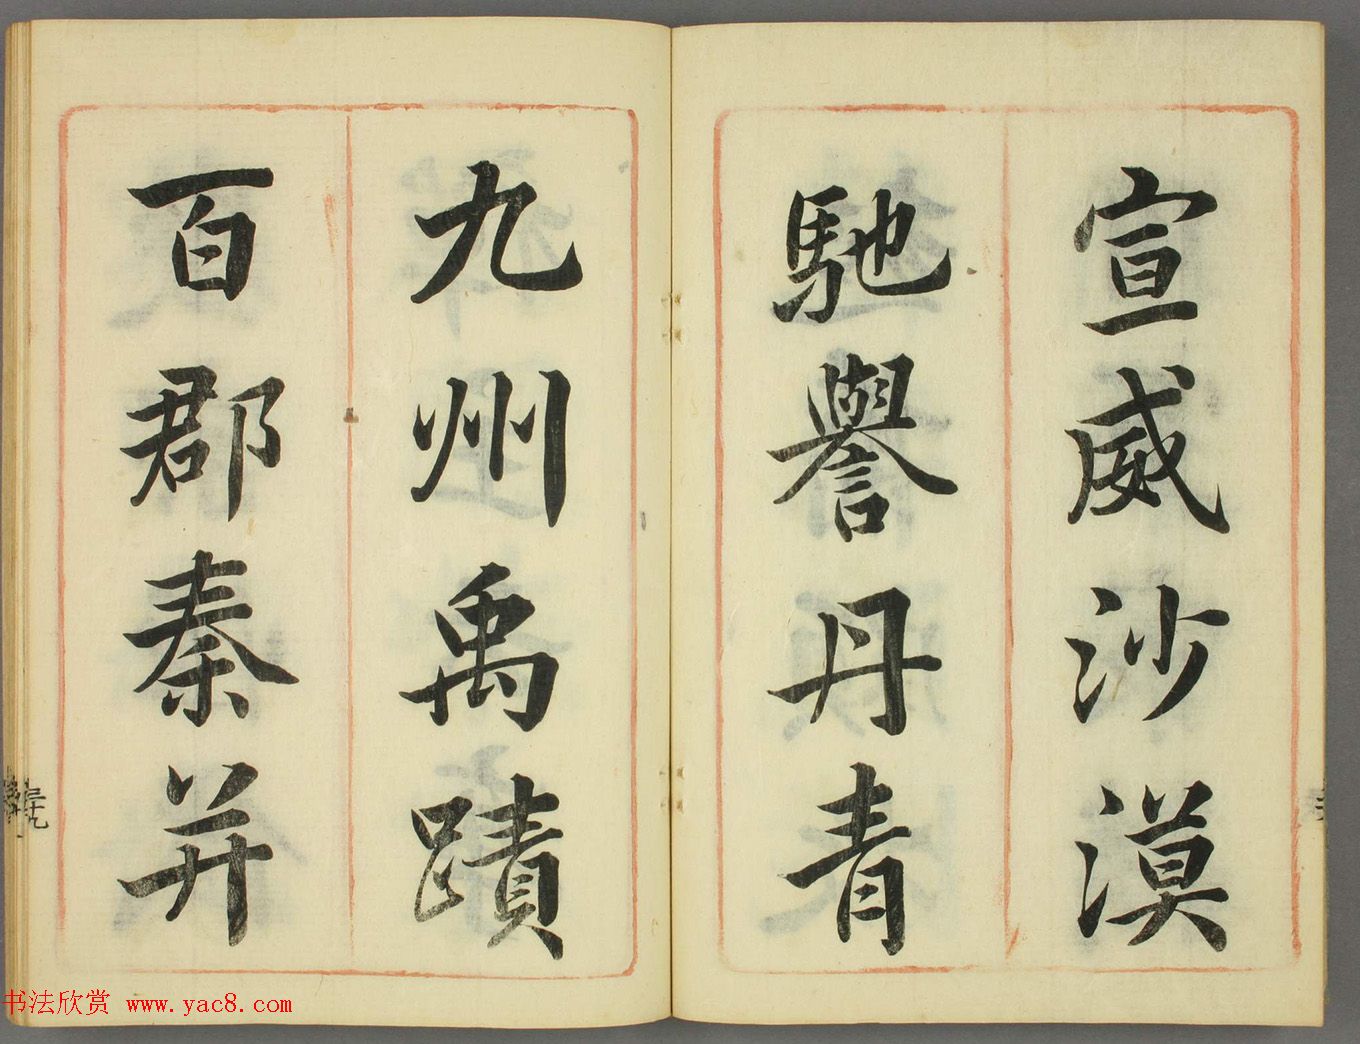 宣威沙漠
馳譽丹青
九州禹蹟
百郡秦并
三十九
书法欣赏 www.yac8.com